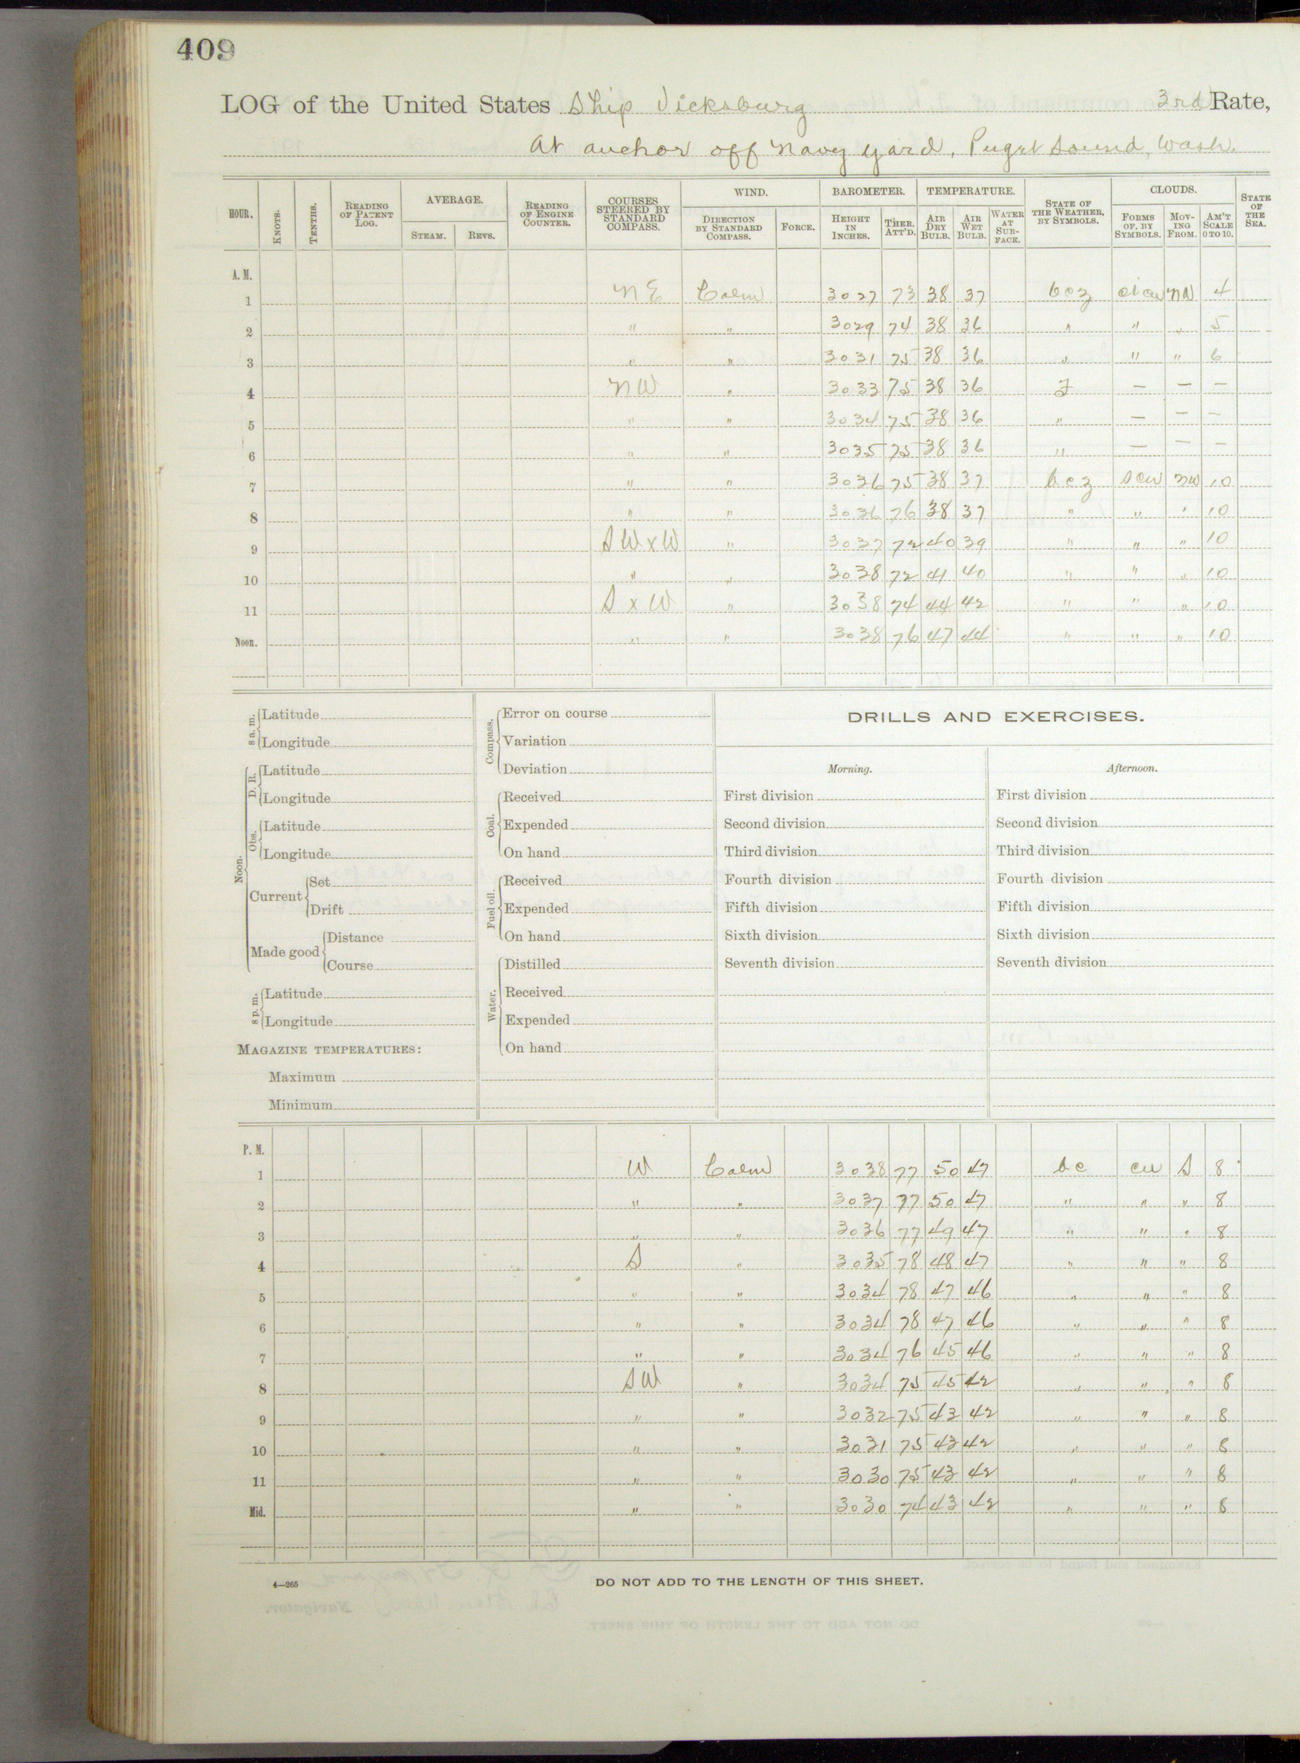 409
LOG of the United States Ship Vicksburg 3rd Rate,
At anchor off Navy Yard, Puget Sound, Wash.
HOUR. KNOTS. TENTHS. READING OF PATENT LOG. AVERAGE. STEAM. REVS. READING OF ENGINE COUNTER. COURSES STEERED BY STANDARD COMPASS. WIND. DIRECTION BY STANDARD COMPASS. FORCE. BAROMETER. HEIGHT IN INCHES. THER. ATT'D. TEMPERATURE. AIR DRY BULB. AIR WET BULB. WATER AT SURFACE. STATE OF THE WEATHER, BY SYMBOLS. CLOUDS. FORMS OF, BY SYMBOLS. MOVING FROM. AM'T SCALE 0 TO 10. STATE OF THE SEA.
A. M.
1 NE Calm 3027 73 38 37 bcz cicu NW 4
2 " " 3029 74 38 36 " " " 5
3 " " 3031 75 38 36 " " " 6
4 NW " 3033 75 38 36 F — — —
5 " " 3034 75 38 36 " — — —
6 " " 3035 75 38 36 " — — —
7 " " 3036 75 38 37 bcz scu NW 10
8 " " 3036 76 38 37 " " " 10
9 SWxW " 3037 72 40 39 " " " 10
10 " " 3038 72 41 40 " " " 10
11 SxW " 3038 74 44 42 " " " 10
Noon. " " 3038 76 47 44 " " " 10
8 a. m. Latitude
Longitude
Noon. D. R. Latitude
Longitude
Obs. Latitude
Longitude
Current Set
Drift
Made good Distance
Course
8 p. m. Latitude
Longitude
MAGAZINE TEMPERATURES:
Maximum
Minimum
Compass. Error on course
Variation
Deviation
Coal. Received
Expended
On hand
Fuel oil. Received
Expended
On hand
Water. Distilled
Received
Expended
On hand
DRILLS AND EXERCISES.
Morning. Afternoon.
First division First division
Second division Second division
Third division Third division
Fourth division Fourth division
Fifth division Fifth division
Sixth division Sixth division
Seventh division Seventh division
P. M.
1 W Calm 3038 77 50 47 bc cu S 8
2 " " 3037 77 50 47 " " " 8
3 " " 3036 77 49 47 " " " 8
4 S " 3035 78 48 47 " " " 8
5 " " 3034 78 47 46 " " " 8
6 " " 3034 78 47 46 " " " 8
7 " " 3034 76 45 46 " " " 8
8 SW " 3034 75 45 42 " " " 8
9 " " 3032 75 43 42 " " " 8
10 " " 3031 75 43 42 " " " 8
11 " " 3030 75 43 42 " " " 8
Mid. " " 3030 74 43 42 " " " 8
4—265 DO NOT ADD TO THE LENGTH OF THIS SHEET.